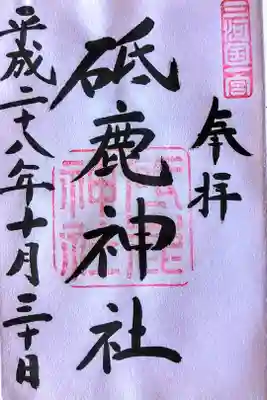 三河国一宮
奉拝
砥鹿神社
砥鹿神社
平成二十八年十月三十日